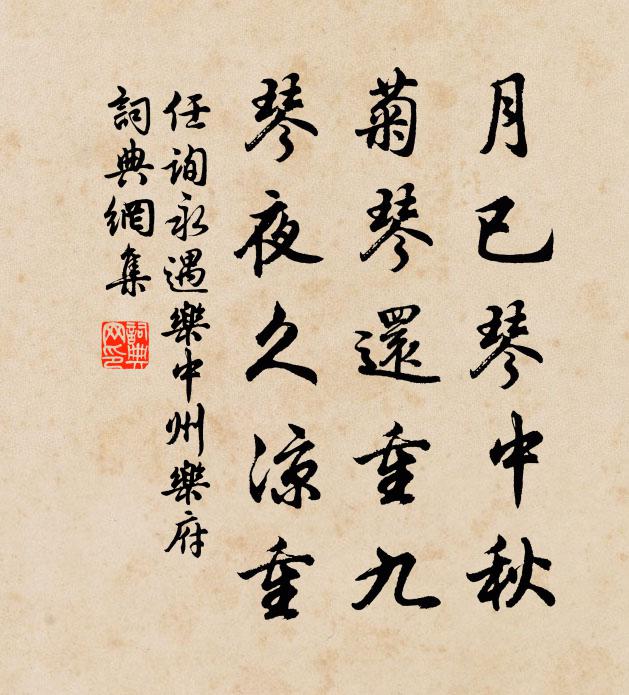 月已琴中秋
菊琴還重九
琴夜久涼重
任詢永遇樂中州樂府
詞典網集
詞典網印